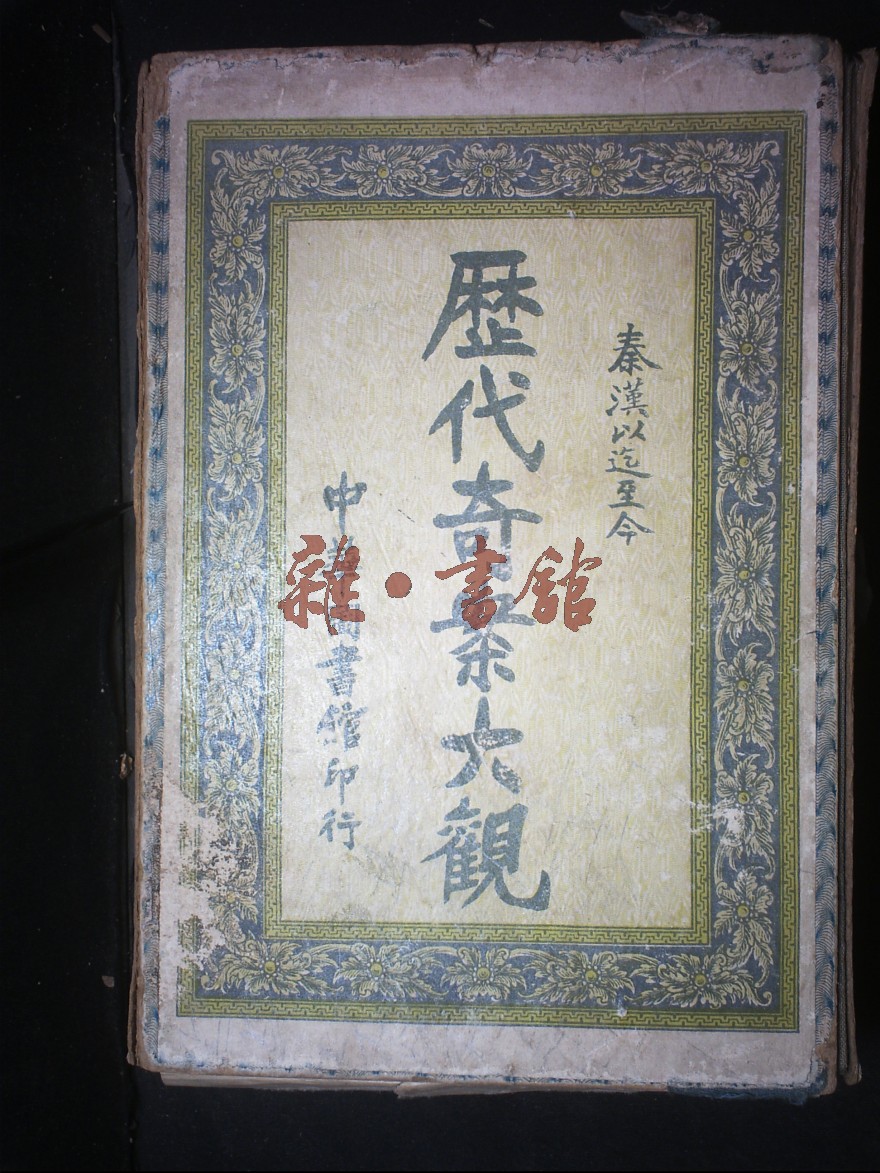 秦漢以迄至今
歷代奇案大觀
中華圖書館印行
雜·書舘